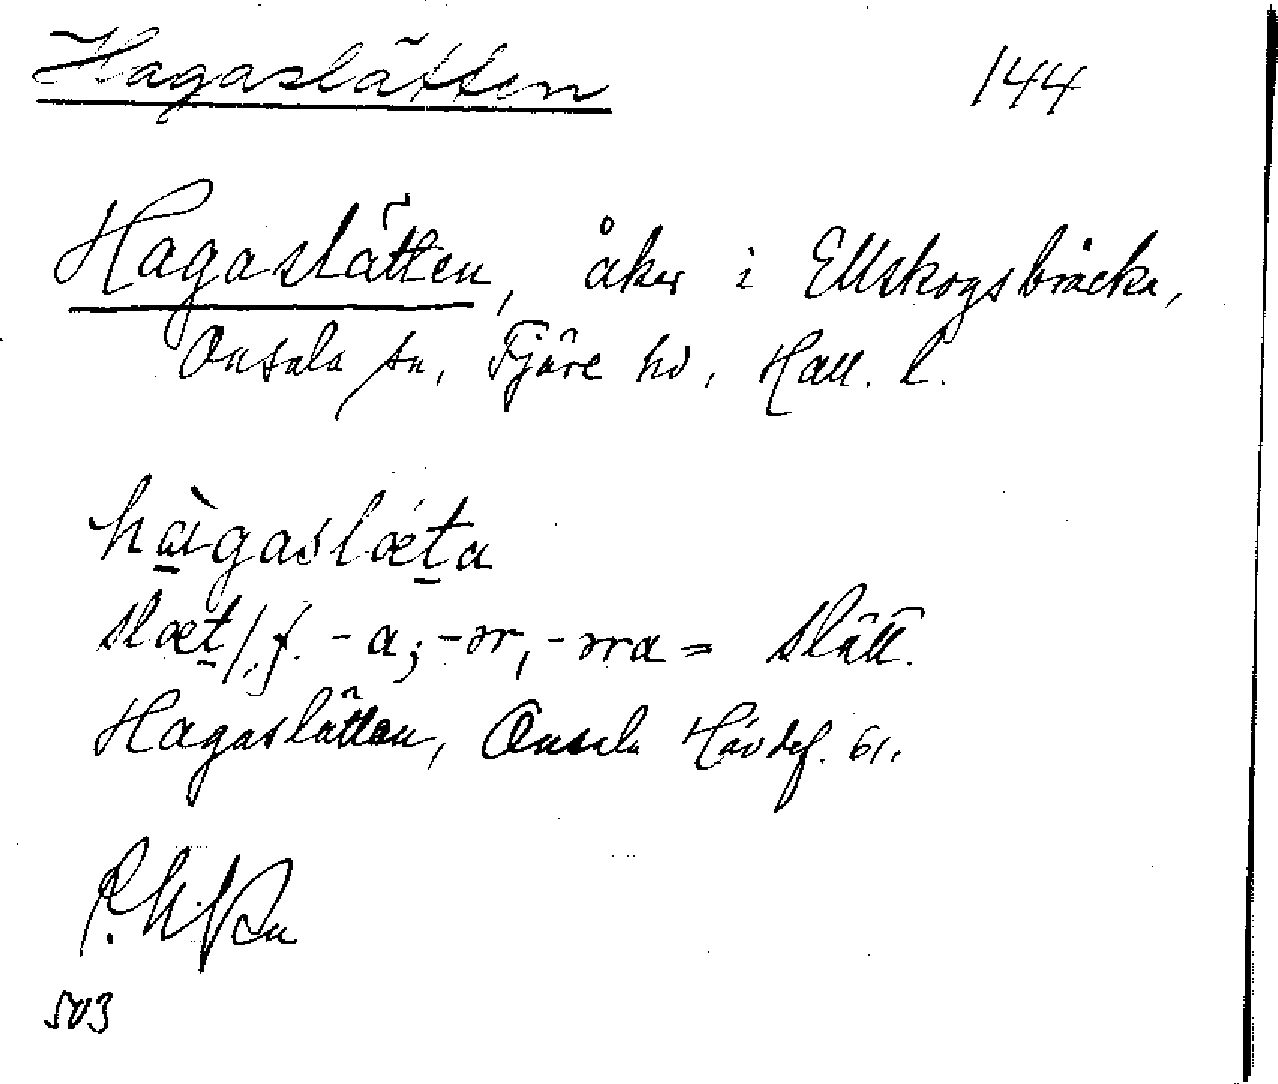 Hagaslätten 144
Hagaslätten, åker i Ellskogsbräcka,
Onsala sn, Fjäre hd, Hall. l.
hàgaslæta
slæt/ f. -a; -ər, -ərəa = slätt.
Hagaslätten, Onsala 61.
503